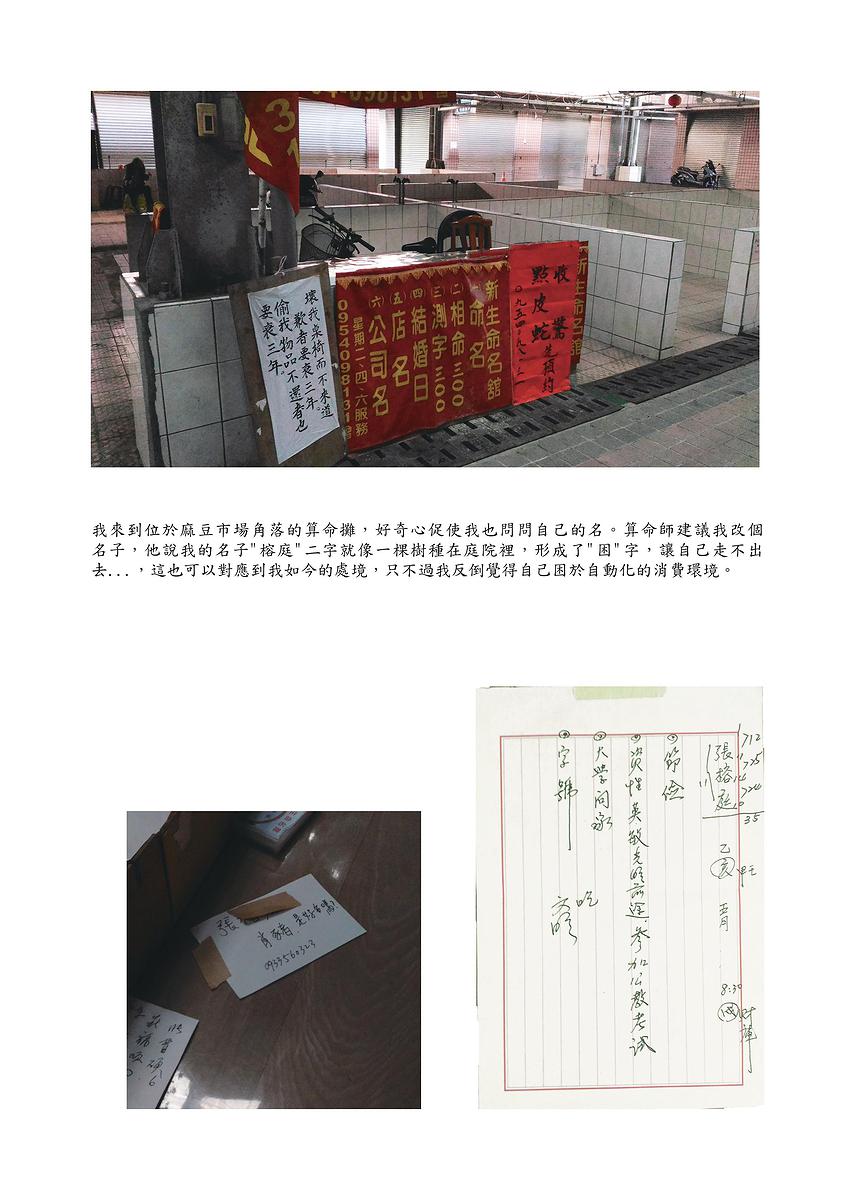 壞我桌椅而不來道
歉者要衰三年。
偷我物品不還者也
要衰三年。
新生命名舘
(一)命名
(二)相命三00
(三)測字三00
(四)結婚日
(五)店名
(六)公司名
星期二、四、六服務
0954098131
收驚
點皮蛇
先預約
新生命名舘
我來到位於麻豆市場角落的算命攤，好奇心促使我也問問自己的名。算命師建議我改個
名子，他說我的名子"榕庭"二字就像一棵樹種在庭院裡，形成了"困"字，讓自己走不出
去...，這也可以對應到我如今的處境，只不過我反倒覺得自己困於自動化的消費環境。
張
肖豬,是好名嗎?
0933560323
張榕庭
35
乙亥
8:30
節儉
資性英敏光明前途.參加公教考試
大學問家
字號